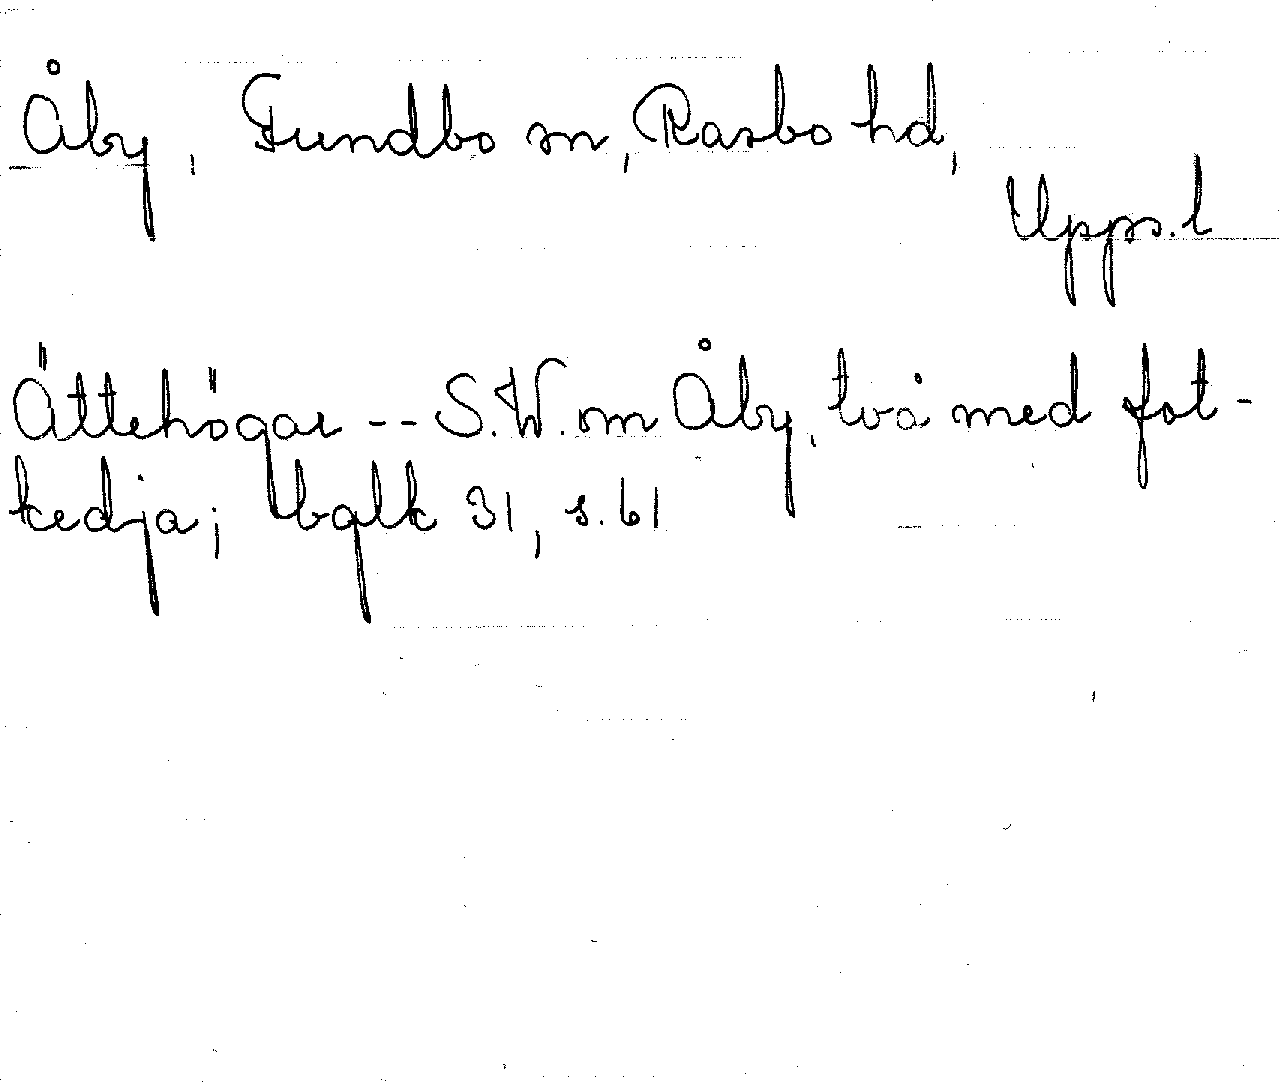 Åby, Fundbo sn, Rasbo hd,
Upps. l
Ättehögar -- S.W. om Åby, två med fot-
kedja; Ubglk 31, s. 61